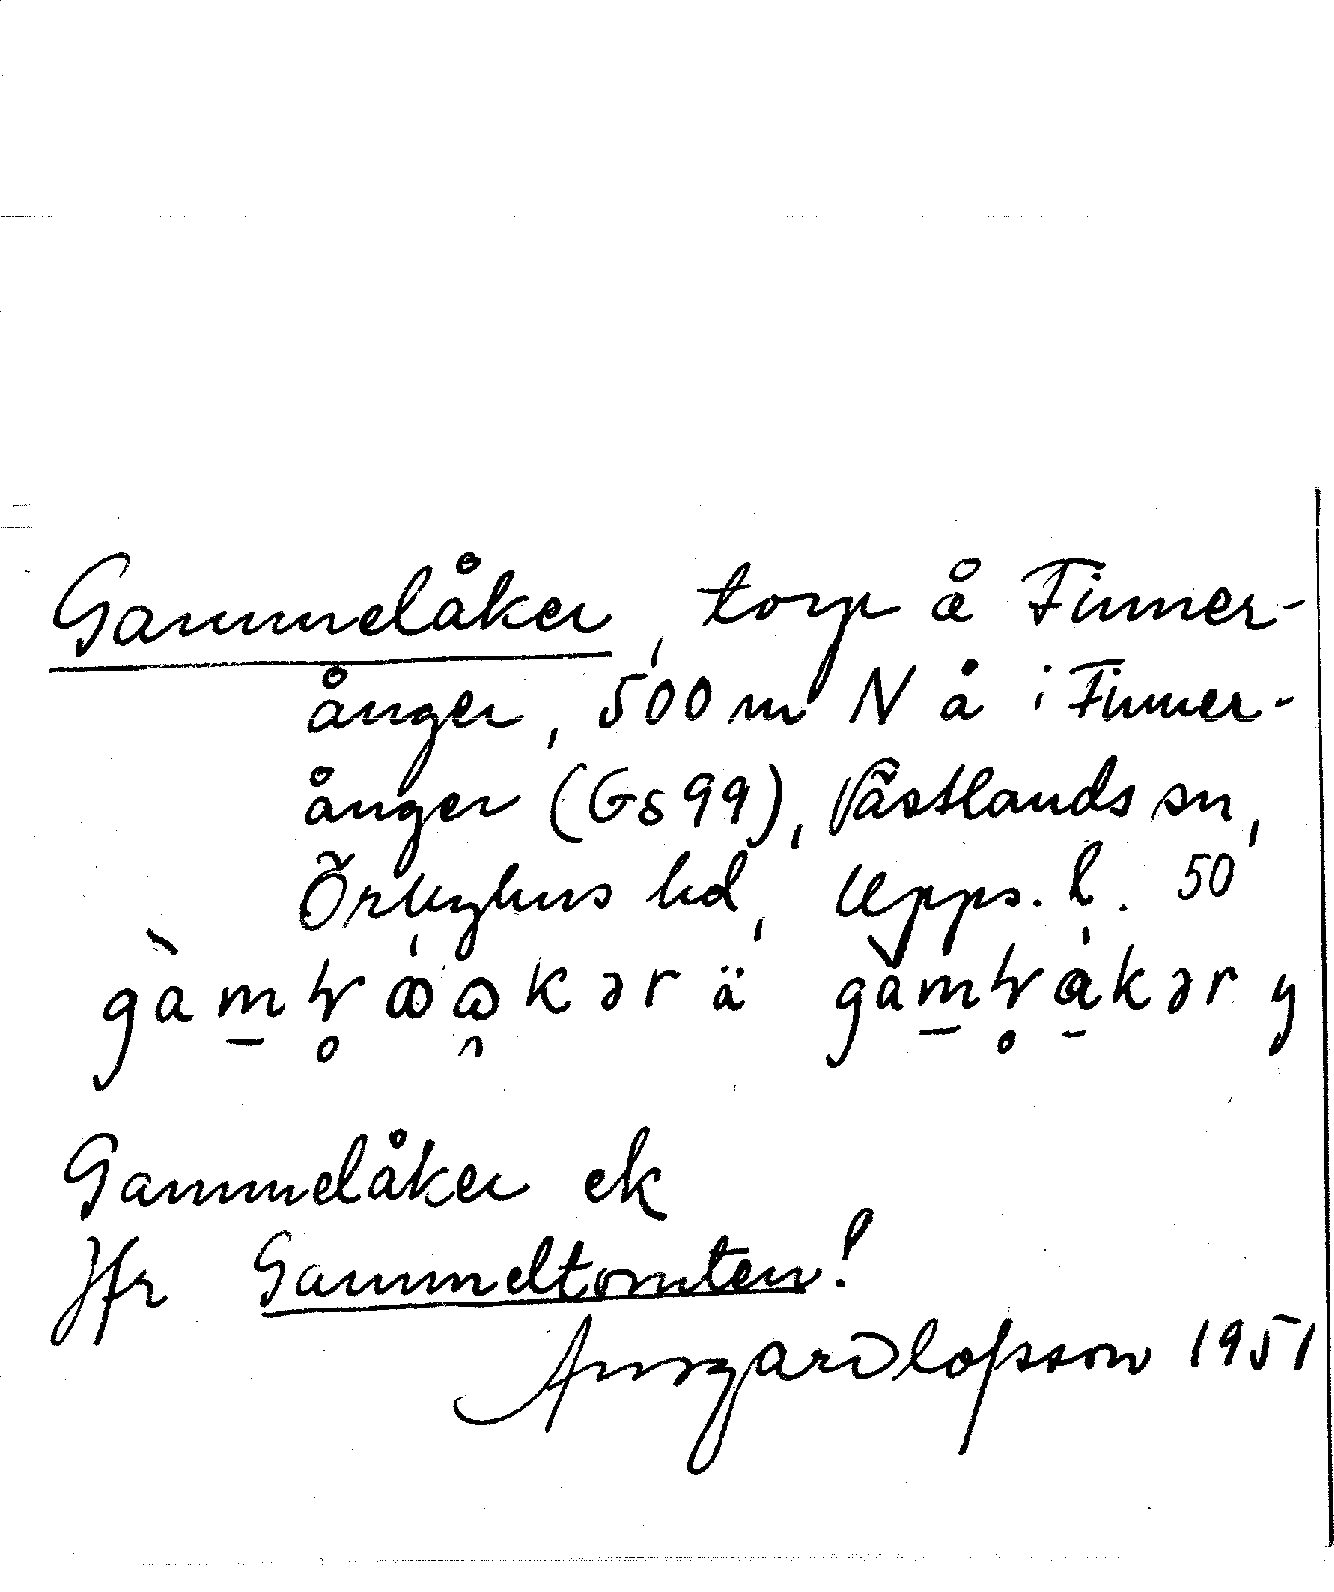 Gammelåker, torp å Finner-
ånger, 500 m N å i Finner-
ånger (Gs 99), Västlands sn,
Örbyhus hd, Upps. l. 50
Gammelåker ek
Jfr Gammeltomten!
Ansgar Olofsson 1951